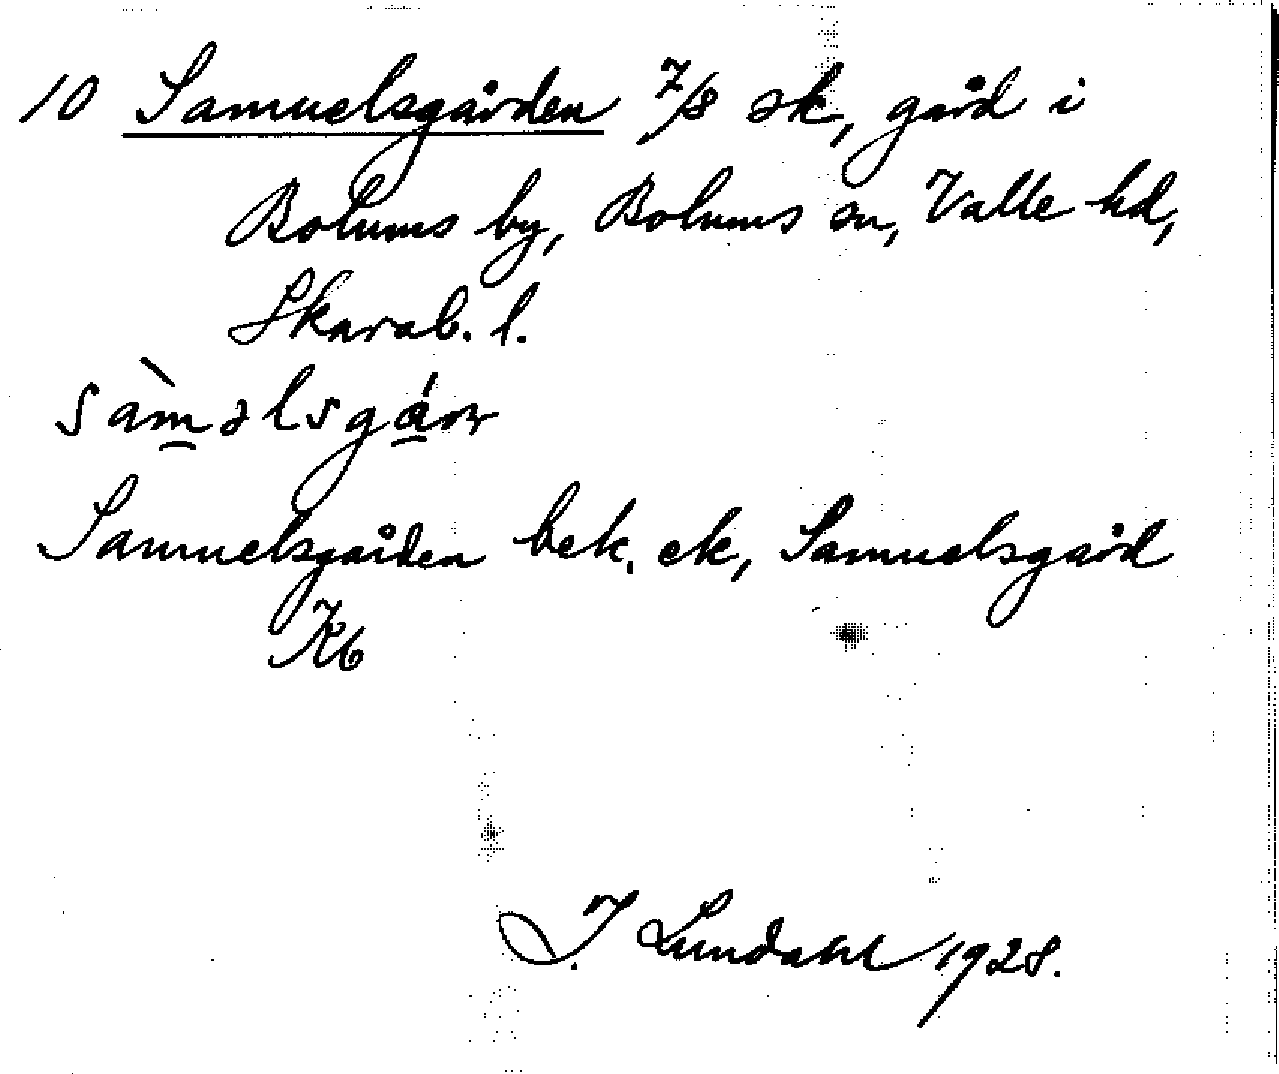 10 Samuelsgården 7/8 sk, gård i
Bolums by, Bolums sn, Valle hd,
Skarab. l.
sàməlsgá
Samuelsgården bek. ek, Samuelsgård
Kb
I. Lundahl 1928.